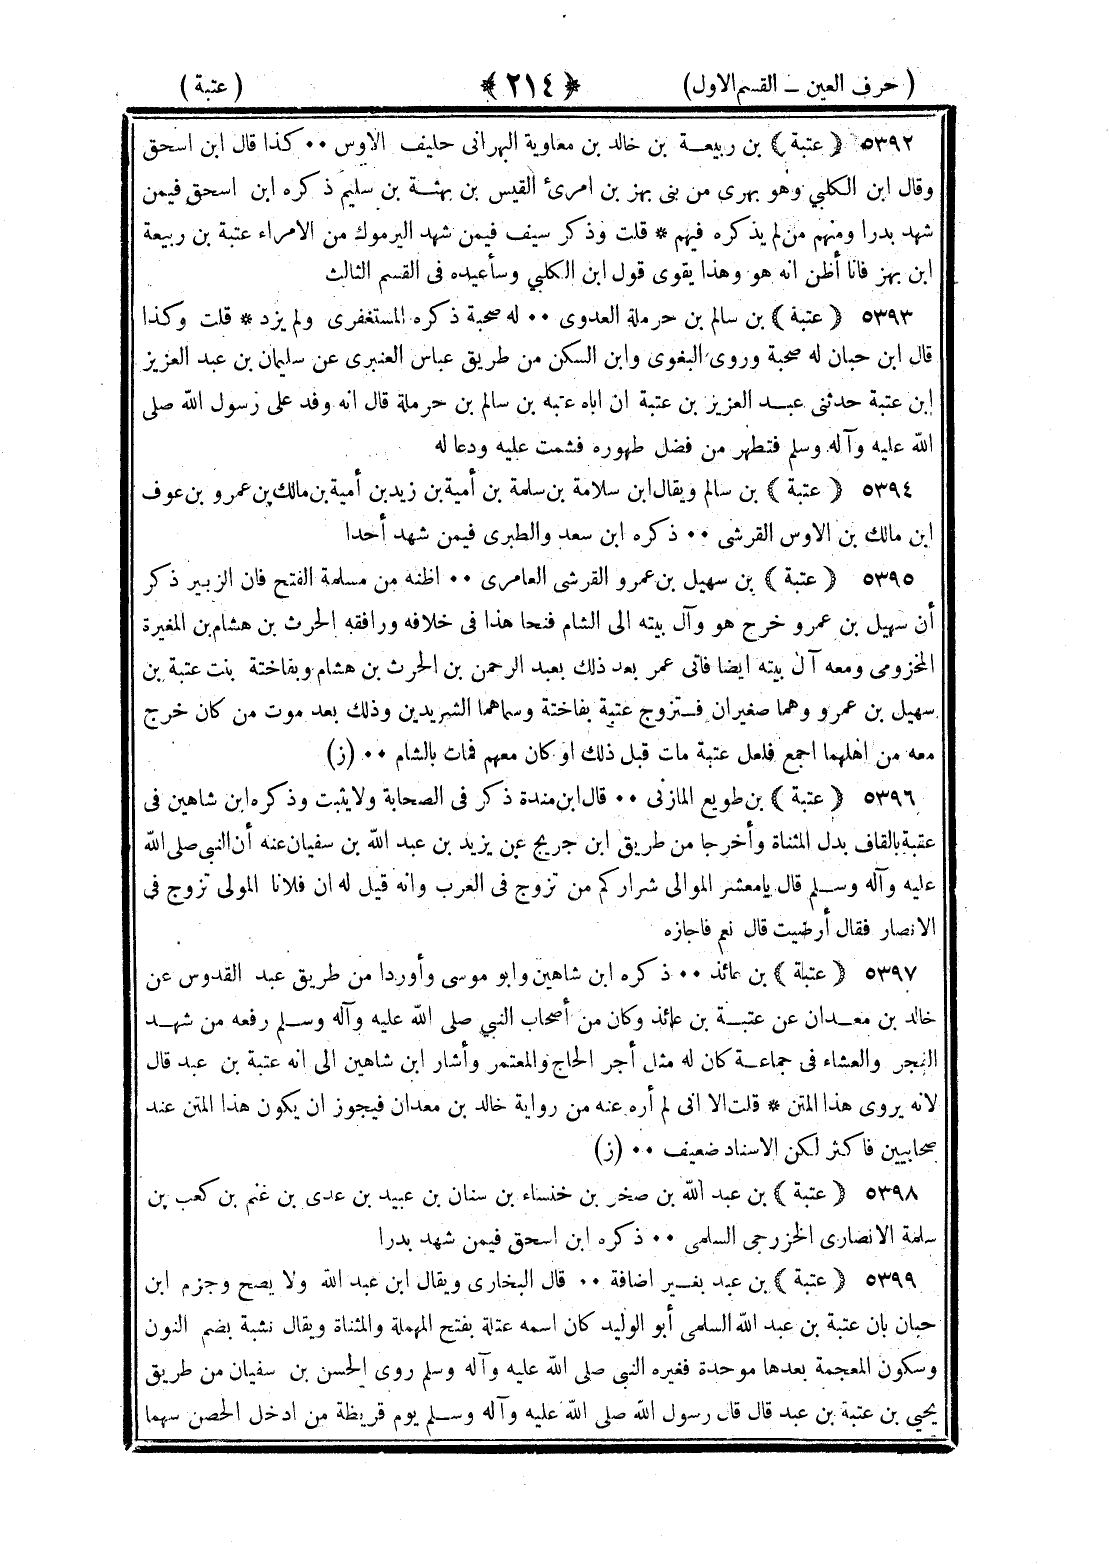 ( حرف العين ــ القسم الاول) ﴿ ٢١٤ ﴾ ( عتبة )
٥٣٩٢ ﴿ عتبة ﴾ بن ربيعـة بن خالد بن معاوية البهرانى حليف الاوس ٠٠ كذا قال ابن اسحق
وقال ابن الكلبي وهو بهرى من بنى بهز بن امرئ القيس بن بهثـة بن سليم ذكره ابن اسحق فيمن
شهد بدرا ومنهم من لم يذكره فيهم * قلت وذكر سيف فيمن شهد اليرموك من الامراء عتبة بن ربيعة
ابن بهز فانا أظن انه هو وهذا يقوى قول ابن الكلبي وسأعيده فى القسم الثالث
٥٣٩٣ ﴿ عتبة ﴾ بن سالم بن حرملة العدوى ٠٠ له صحبة ذكره المستغفرى ولم يزد * قلت وكذا
قال ابن حبان له صحبة وروى البغوى وابن السكن من طريق عباس العنبرى عن سليمان بن عبد العزيز
ابن عتبة حدثنى عبـد العزيز بن عتبة ان اباه عتبه بن سالم بن حرملة قال انه وفد على رسول الله صلى
الله عليه وآله وسلم فتطهر من فضل طهوره فشمت عليه ودعا له
٥٣٩٤ ﴿ عتبة ﴾ بن سالم ويقال ابن سلامة بن سلمة بن أمية بن زيد بن أمية بن مالك بن عمرو بن عوف
ابن مالك بن الاوس القرشى ٠٠ ذكره ابن سعد والطبرى فيمن شهد أحدا
٥٣٩٥ ﴿ عتبة ﴾ بن سهيل بن عمرو القرشى العامرى ٠٠ اظنه من مسلمة الفتح فان الزبير ذكر
أن سهيل بن عمرو خرج هو وآل بيته الى الشام فنحا هذا فى خلافه ورافقه الحرث بن هشام بن المغيرة
المخزومى ومعه آل بيته ايضا فاتى عمر بعد ذلك بعبد الرحمن بن الحرث بن هشام وبفاختة بنت عتبة بن
سهيل بن عمرو وهما صغيران فـتزوج عتبة بفاختة وسماهما الشريدين وذلك بعد موت من كان خرج
معه من اهلهما اجمع فلعل عتبة مات قبل ذلك او كان معهم فمات بالشام ٠٠ (ز)
٥٣٩٦ ﴿ عتبة ﴾ بن طويع المازنى ٠٠ قال ابن مندة ذكر فى الصحابة ولا يثبت وذكره ابن شاهين فى
عقبة بالقاف بدل المثناة وأخرجا من طريق ابن جريج عن يزيد بن عبد الله بن سفيان عنه أن النبي صلى الله
عليه وآله وسـلم قال يا معشر الموالى شراركم من تزوج فى العرب وانه قيل له ان فلانا المولى تزوج فى
الانصار فقال أرضيت قال نعم فاجازه
٥٣٩٧ ﴿ عتبة ﴾ بن عائذ ٠٠ ذكره ابن شاهين وابو موسى وأوردا من طريق عبد القدوس عن
خالد بن معـدان عن عتبـة بن عائذ وكان من أصحاب النبي صلى الله عليه وآله وسـلم رفعه من شهـد
الفجر والعشاء فى جماعـة كان له مثل أجر الحاج والمعتمر وأشار ابن شاهين الى انه عتبة بن عبد قال
لانه يروى هذا المتن * قلت الا انى لم أره عنه من رواية خالد بن معدان فيجوز ان يكون هذا المتن عند
صحابيين فاكثر لكن الاسناد ضعيف ٠٠ (ز)
٥٣٩٨ ﴿ عتبة ﴾ بن عبد الله بن صخر بن خنساء بن سنان بن عبيد بن عدى بن غنم بن كعب بن
سلمة الانصارى الخزرجى السلمى ٠٠ ذكره ابن اسحق فيمن شهد بدرا
٥٣٩٩ ﴿ عتبة ﴾ بن عبد بغـير اضافة ٠٠ قال البخارى ويقال ابن عبد الله ولا يصح وجزم ابن
حبان بان عتبة بن عبد الله السلمى أبو الوليد كان اسمه عتلة بفتح المهملة والمثناة ويقال نشبة بضم النون
وسكون المعجمة بعدها موحدة فغيره النبي صلى الله عليه وآله وسلم روى الحسن بن سفيان من طريق
يحيي بن عتبة بن عبد قال قال رسول الله صلى الله عليه وآله وسـلم يوم قريظة من ادخل الحصن سهما